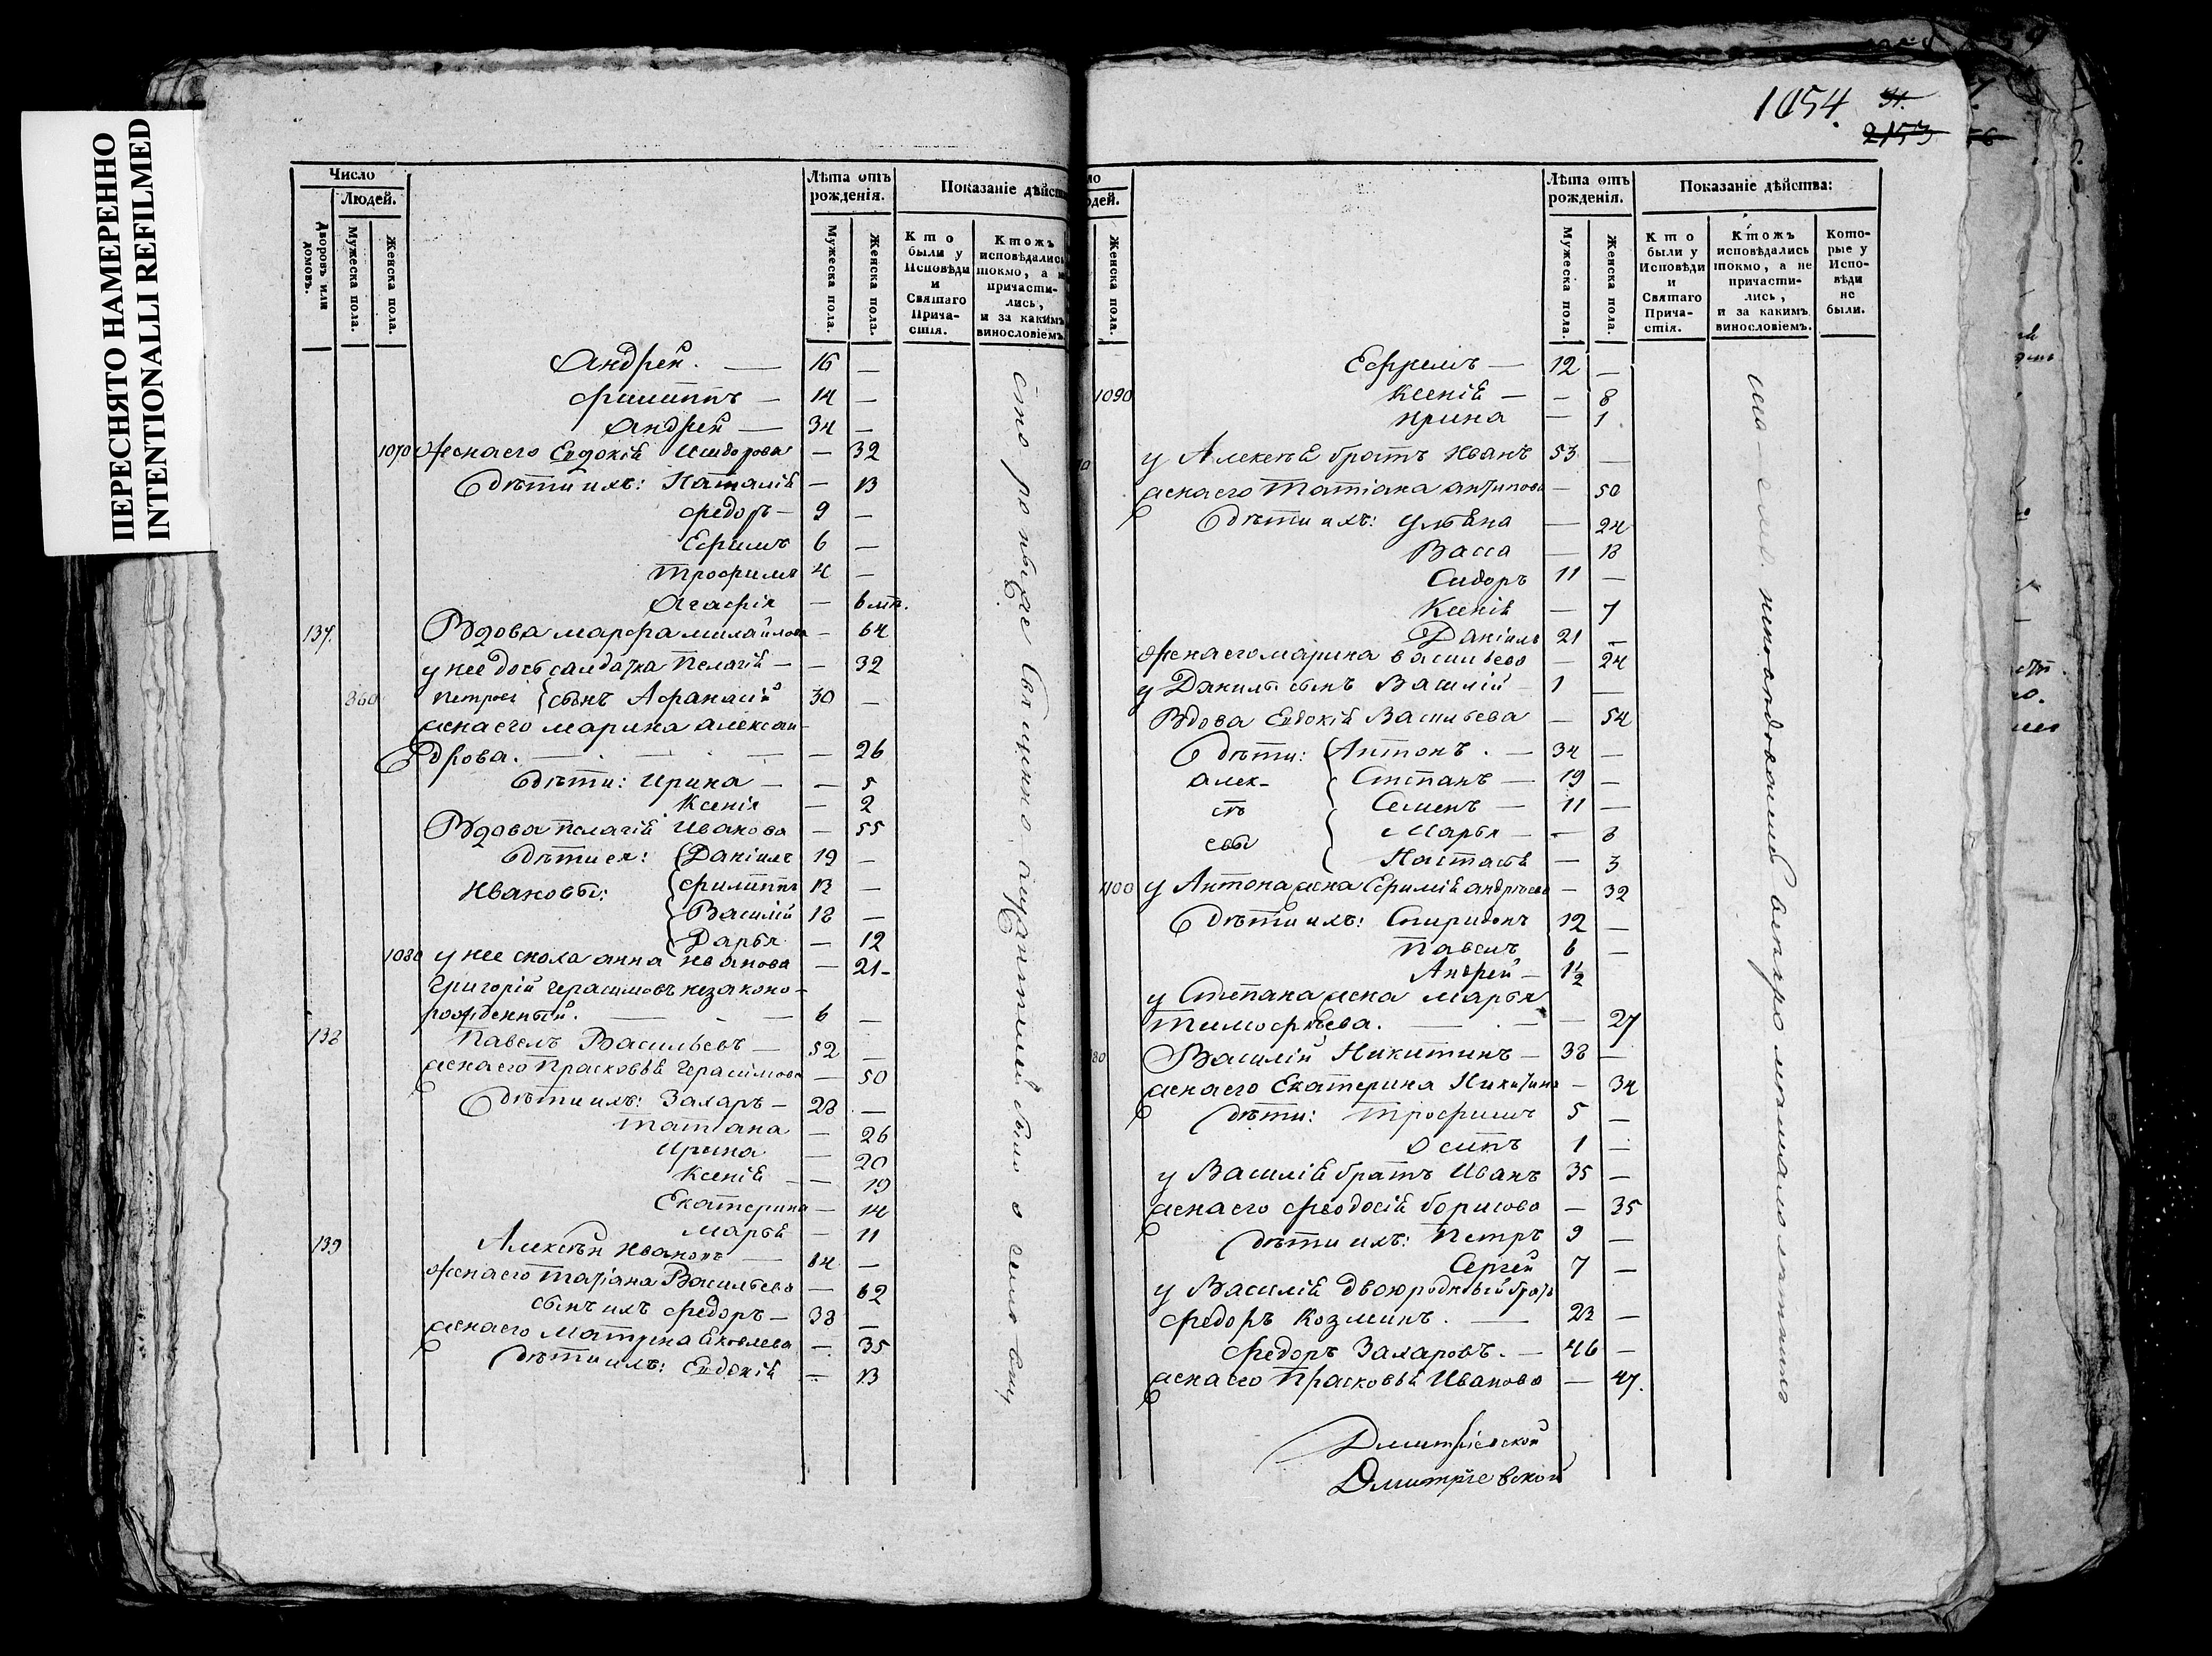 ПЕРЕСНЯТО НАМЕРЕННО
INTENTIONALLI REFILMED
Число
Людей.
Дворовъ или домовъ.
Мужеска пола.
Женска пола.
Лѣта отъ рожденія.
Мужеска пола.
Женска пола.
Показаніе дѣйств
Кто были у Исповѣди и Святаго Причастія.
Ктожъ исповѣдались токмо, а не причастились, и за какимъ винословіемъ.
Андрей. — 16 —
Филиппъ — 14 —
Андрей — 34 —
1070 Жена его Евдокія Исидорова — 32
Дѣти ихъ: Наталія — 13
Федоръ — 9 —
Ефимъ 6 —
Трофимъ 4 —
Агафія — 6 мѣ.
137. Вдова Марфа Михайлова — 64
у нее дочь салдатка Пелагія — — 32
360 Петровы сынъ Афанасій 30 —
жена его Марина Алексан-
дрова. — — — 26
Дѣти: Ирина — — 5
Ксенія — 2
Вдова Пелагія Иванова — 55
Дѣти ея: Даніилъ 19 —
Ивановы: Филиппъ 13 —
Василій 18 —
Дарья — 12
1080 у нее сноха Анна Иванова — 21 -
Григорій Герасимовъ незаконо-
рожденный. — — 6 —
138 Павелъ Васильевъ — 52 —
жена его Прасковья Герасимова — 50
Дѣти ихъ: Захаръ — 28 —
Татіана — 26
Ирина — 20
Ксенія — — 19
Екатерина — 14
Марья — 11
139 Алексѣй Ивановъ — 64 —
Жена его Татіана Васильева — 62
сынъ ихъ Федоръ — 38 —
жена его Матрена Яковлева — 35
Дѣти ихъ: Евдокія — 13
1054. 31.
2153
Женска пола.
Лѣта отъ рожденія.
Мужеска пола.
Женска пола.
Показаніе дѣйства:
Кто были у Исповѣди и Святаго Причастія.
Ктожъ исповѣдались токмо, а не причастились, и за какимъ винословіемъ.
Которые у Исповѣди не были.
Ефремъ — 12 —
1090 Ксенія — — 8
Ирина — 1
у Алексѣя братъ Иванъ 53 —
жена его Татіана Антипова — 50
Дѣти ихъ: Ульяна — 24
Васса — 18
Сидоръ 11 —
Ксенія — 7
Даніилъ 21 —
Жена его Марина Васильева — 24
у Данилы сынъ Василій — 1 —
Вдова Евдокія Васильева — 54
Дѣти: Антонъ. — 34 —
Алек- Степанъ — 19 —
сѣ Семенъ — 11 —
евы Марья — — 8
Настасья — 3
у Антона жена Ефимія Андреева — 32
Дѣти ихъ: Спиридонъ 12 —
Павелъ 6 —
Андрей — 1½
у Степана жена Марья
Тимофѣева. — — — 27
Василій Никитинъ — 38 —
жена его Екатерина Никитина — 34
Дѣти: Трофимъ 5 —
Осипъ 1 —
у Василія братъ Иванъ 35 —
жена его Феодосія Борисова — 35
Дѣти ихъ: Петръ 9 —
Сергей 7 —
у Василія двоюродный братъ
Федоръ Козминъ. — 23 —
Федоръ Захаровъ. — 46 —
жена его Прасковья Иванова — 47.
Дмитріевской
Дмитріевской